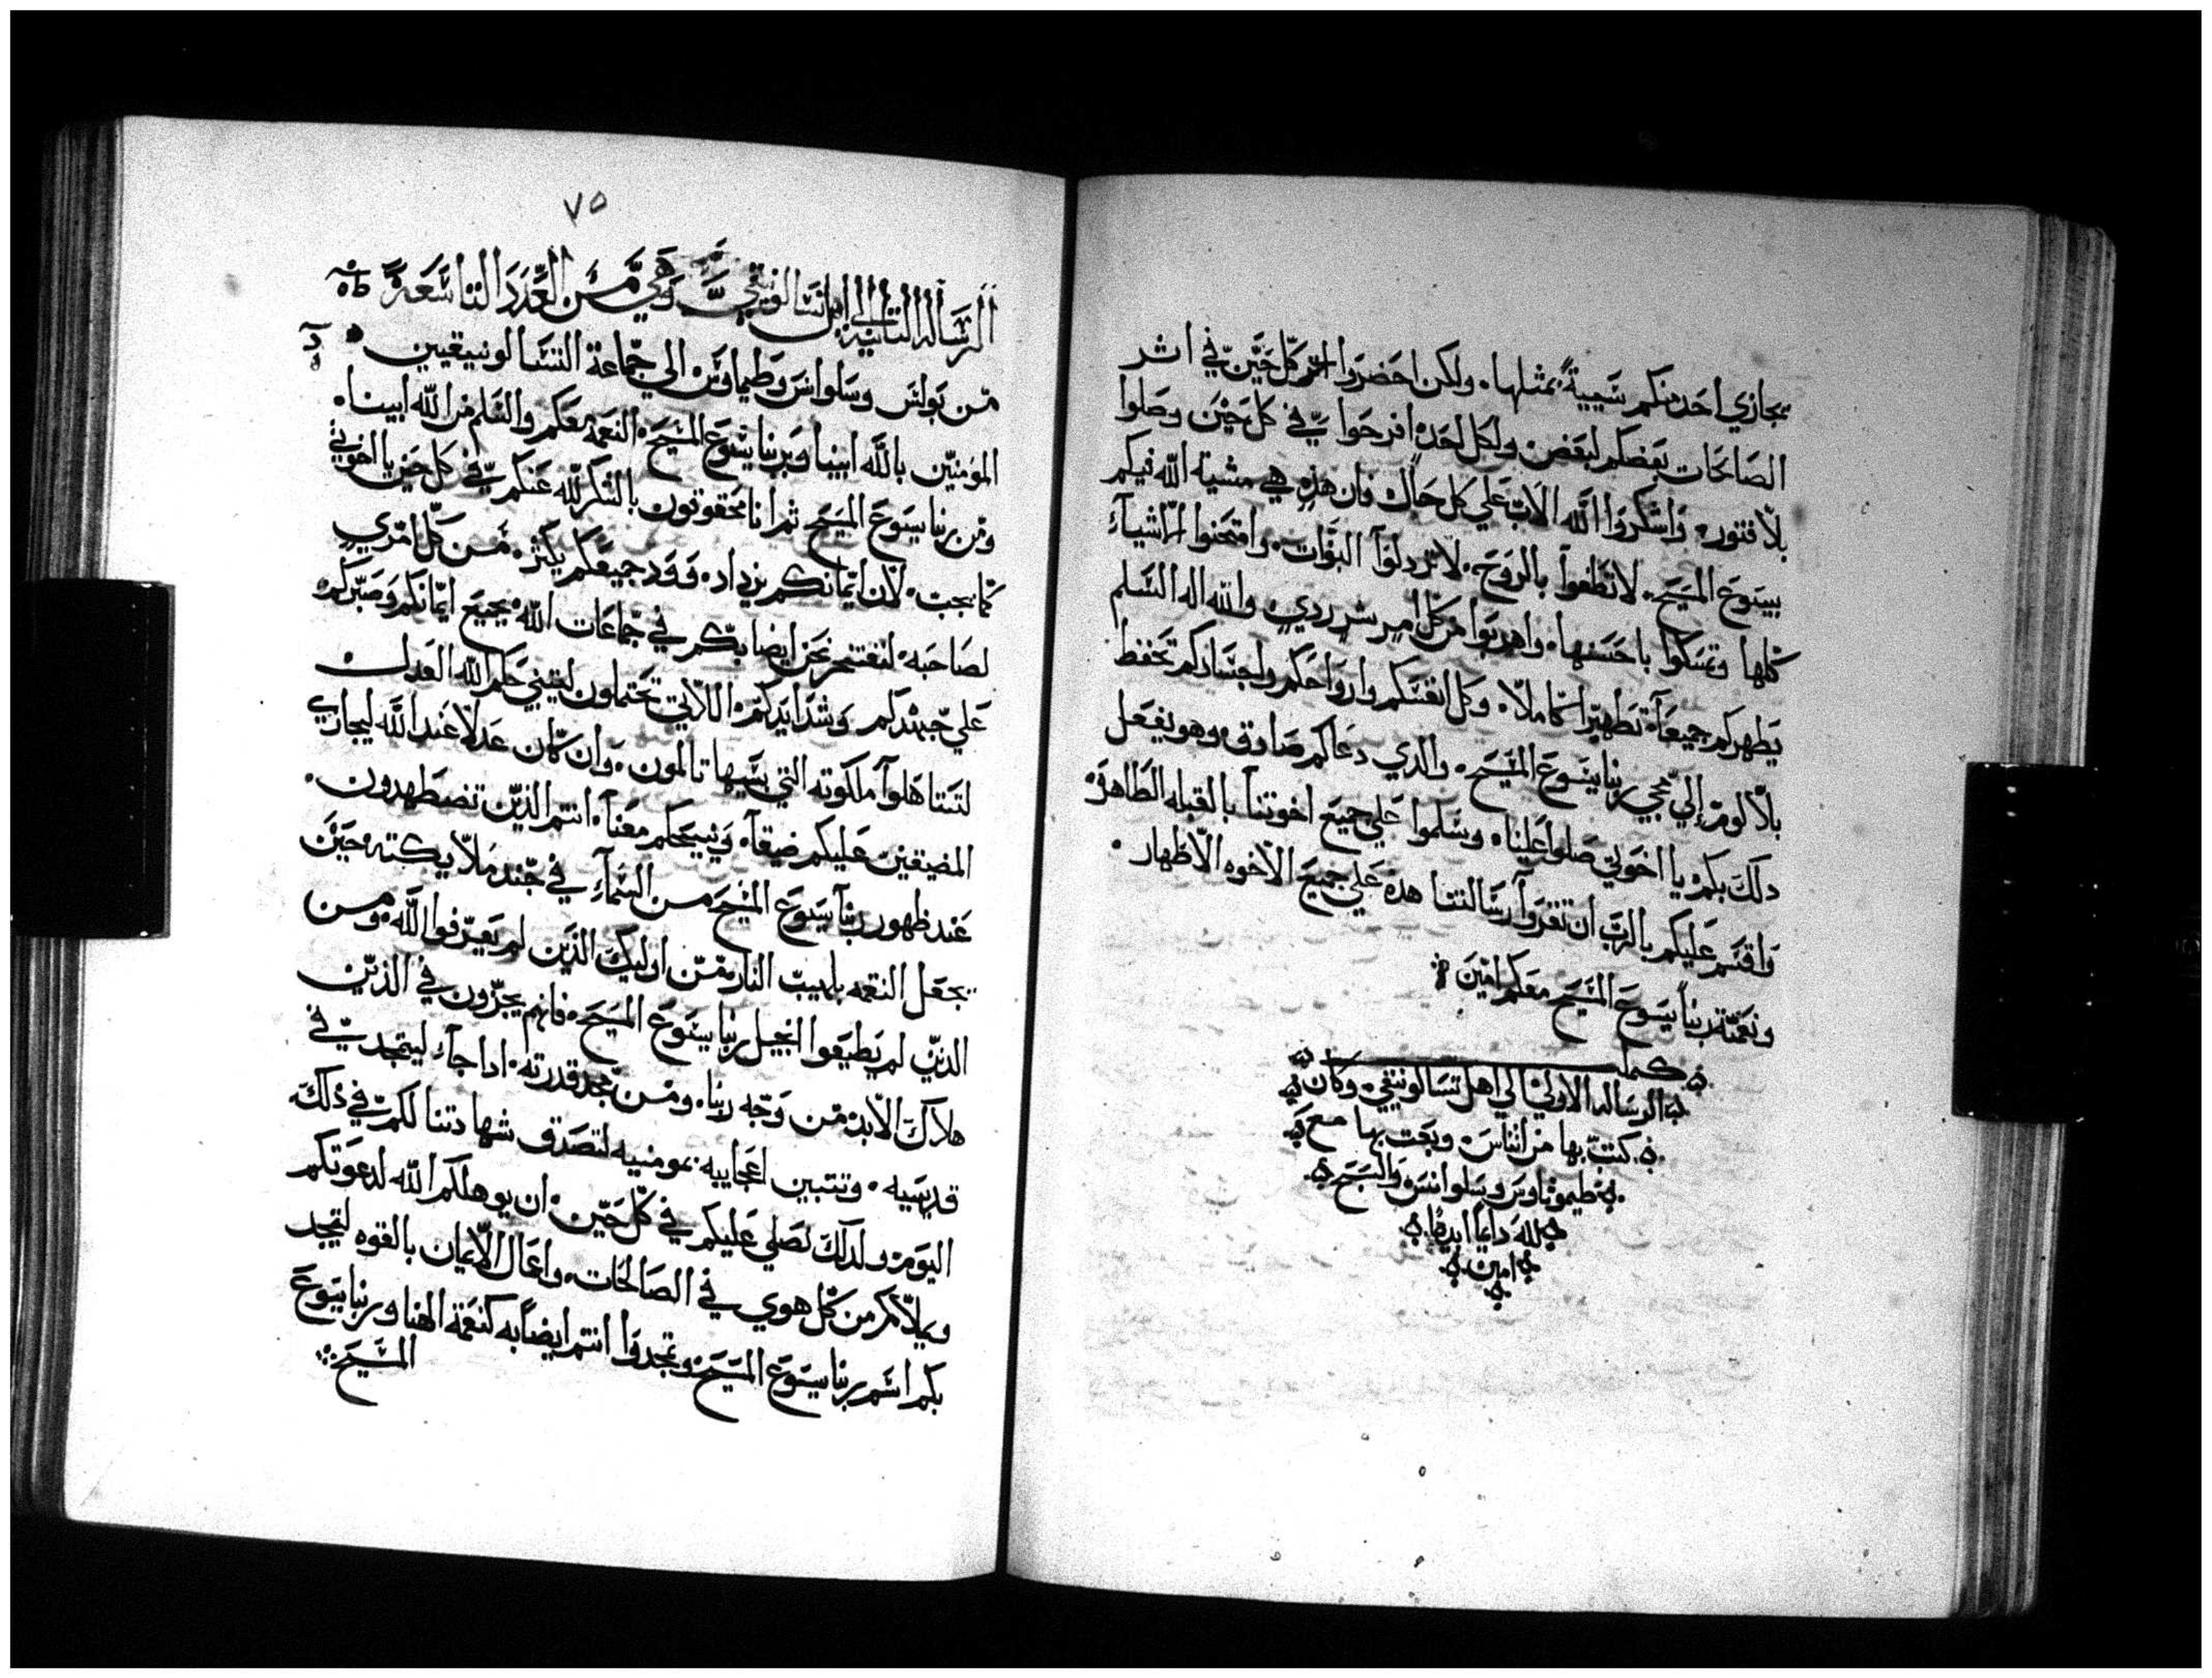 يجازي احد منكم شيية بمثلها ولكن احضروا كل حين في اثر
الصالحات بعضكم لبعض ولكل احد افرحوا في كل حين وصلوا
بلا فتور واشكروا الله الاب علي كل حال فان هذه هي مشية الله فيكم
بيسوع المسيح لا تطفوا بالروح لا تردلوا النبوات وامتحنوا الاشيآء
كلها وتمسكوا باحسنها واهربوا من كل امر شر ردي والله اله السلم
يطهركم جميعآ تطهيرا كاملا وكل انفسكم وارواحكم واجسادكم تحفظ
بلا لوم إلي مجي ربنا يسوع المسيح والذي دعاكم صادق وهو يفعل
دلك بكم يا اخوتي صلوا علينا وسلموا علي جميع اخوتنا بالقبله الطاهرة
واقسم عليكم بالرب ان تقروآ رسالتنا هده علي جميع الاخوه الاطهار
ونعمة ربنا يسوع المسيح معكم امين
كملت
الرساله الاولي الي اهل تسالونيقي وكان
كتب بها من اتناس وبعت بها مع
طيموتاوس وسلوانس والسبح
لله دايما ابدا
امين
٧٥
الرساله التانيه الي اهل تسالونيقي وهي من العدد التاسعة
من بولس وسلوانس وطيماوتس الي جماعة التسالونيقيين
المومنين بالله ابينا وبربنا يسوع المسيح النعمه معكم والسلم من الله ابينا
ومن ربنا يسوع المسيح ثم انا محقوقون بالشكر لله عنكم في كل حين يا اخوتي
كما يجب لان ايمانكم يزداد وود جميعكم يكتر من كل امري
لصاحبه لنفتخر نحن ايضا بكم في جماعات الله بجميع ايمانكم وصبركم
علي جهدكم وشدايدكم اللاتي تحتملون ليتبين حكم الله العدل
لتستاهلوآ ملكوته التي بسببها تالمون وان كان عدلا عند الله ليجازي
المضيقين عليكم ضيقآ وينيحكم معنآ انتم الذين تضطهدون
عند ظهور ربنآ يسوع المسيح من السمآء في جند ملايكته حين
يجعل النقمه بلهيب النار من اوليك الذين لم يعرفوا الله ومن
الذين لم يطيعوا انجيل ربنا يسوع المسيح فانهم يجزون في الذين
هلاك الابد من وجه ربنا ومن مجد قدرته ادا جآء ليتمجد في
قديسيه وتتبين اعجابيه بمومنيه لتصدق شهادتنا لكم في ذلك
اليوم ولدلك نصلي عليكم في كل حين ان يوهلكم الله لدعوتكم
ويملاكم من كل هوي في الصالحات واعمال الايمان بالقوه ليتمجد
بكم اسم ربنا يسوع المسيح وتمجدوا انتم ايضا به كنعمة الهنا وربنا يسوع
المسيح